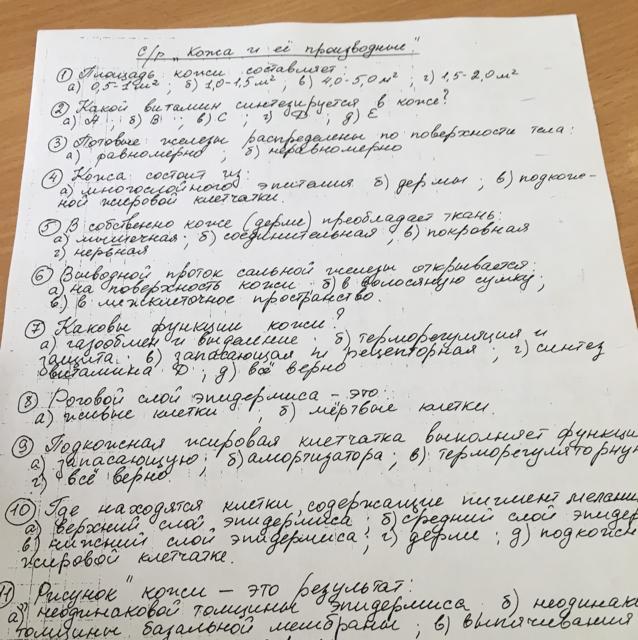 с/р "Кожа и её производные".
① Площадь кожи составляет:
а) 0,5-1 м² ; б) 1,0-1,5 м² ; в) 4,0-5,0 м² ; г) 1,5-2,0 м²
② Какой витамин синтезируется в коже?
а) А ; б) В ; в) С ; г) D ; д) Е
③ Потовые железы распределены по поверхности тела:
а) равномерно ; б) неравномерно
④ Кожа состоит из:
а) многослойного эпителия б) дермы ; в) подкож-
ной жировой клетчатки.
⑤ В собственно коже (дерме) преобладает ткань:
а) мышечная ; б) соединительная ; в) покровная
г) нервная
⑥ Выводной проток сальной железы открывается:
а) на поверхность кожи б) в волосяную сумку ;
в) в межклеточное пространство.
⑦ Каковы функции кожи?
а) газообмен и выделение б) терморегуляция и
защита ; в) запасающая и рецепторная ; г) синтез
витамина D ; д) всё верно
⑧ Роговой слой эпидермиса – это:
а) живые клетки ; б) мёртвые клетки.
⑨ Подкожная жировая клетчатка выполняет функци
а) запасающую ; б) амортизатора ; в) терморегуляторную
г) всё верно
⑩ Где находятся клетки, содержащие пигмент мелани
а) верхний слой эпидермиса ; б) средний слой эпидер
в) нижний слой эпидермиса ; г) дерме ; д) подкожн
жировой клетчатке.
11 "Рисунок" кожи – это результат:
а) неодинаковой толщины эпидермиса б) неодинак
толщины базальной мембраны ; в) выпячивания